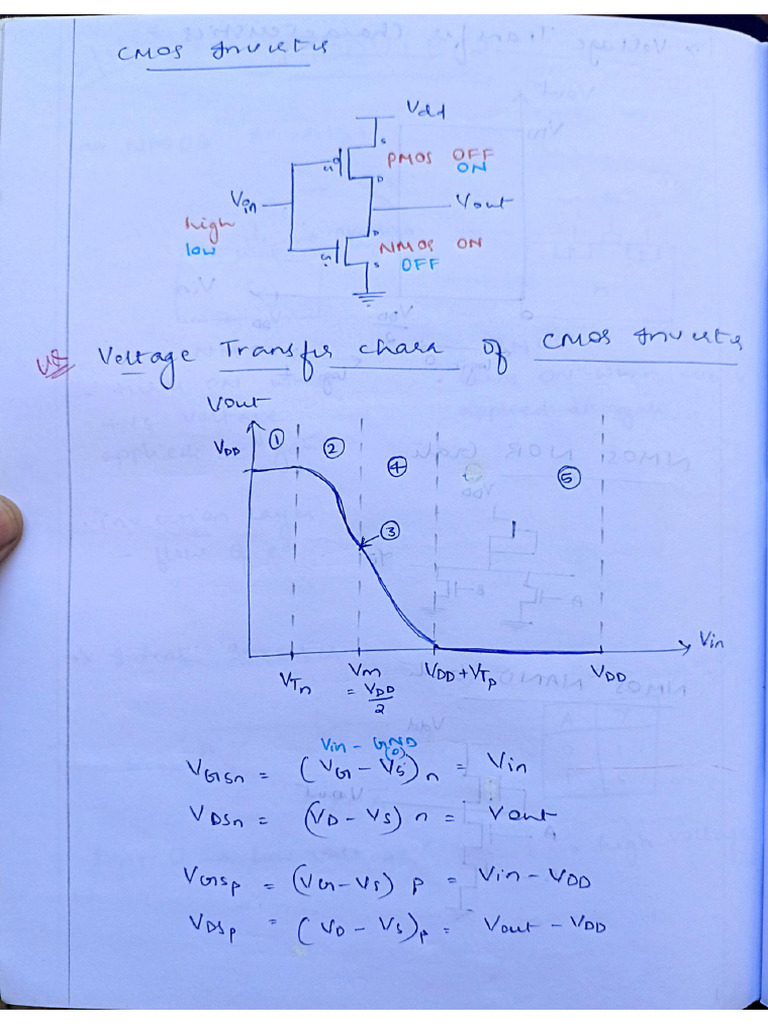 CMOS Inverter
Vdd
S
G
PMOS OFF
ON
D
Vin
Vout
high
low
D
NMOS ON
G
S
OFF
Voltage Transfer chara of CMOS Inverter
Vout
VDD
①
②
④
⑤
③
Vin
VTn
Vm
VDD + VTp
VDD
= VDD/2
Vin - GND
(0)
VGSn = (VG - VS)n = Vin
VDSn = (VD - VS) n = Vout
VGSp = (VG - VS) p = Vin - VDD
VDSp = (VD - VS)p = Vout - VDD